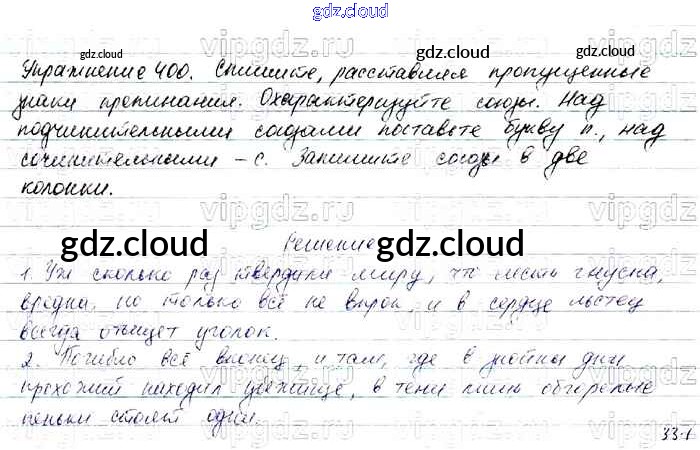 gdz.cloud
gdz.cloud gdz.cloud gdz.cloud
Упражнение 400. Спишите, расставляя пропущенные
знаки препинания. Охарактеризуйте союзы. Над
подчинительными союзами поставьте букву п., над
сочинительными – с. Запишите союзы в две
колонки.
vipgdz.ru
gdz.cloud gdz.cloud gdz.cloud
Решение
1. Уж сколько раз твердили миру, что лесть гнусна,
вредна, но только всё не впрок, и в сердце льстец
всегда отыщет уголок.
2. Погибло всё вконец, и там, где в знойны дни
прохожий находил убежище, в тени лишь обгорелые
пеньки стоят одни.
331